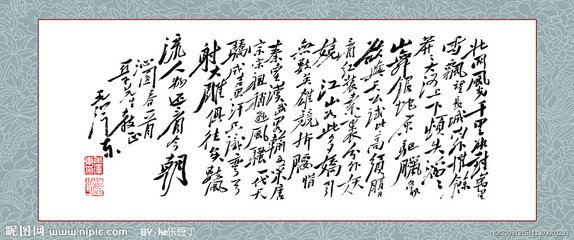 北国风光千里冰封万里
雪飘望长城内外惟馀
莽莽大河上下顿失滔滔
山舞银蛇原驰腊象
欲与天公试比高须晴
日看红装素裹分外妖
娆江山如此多娇引
无数英雄竞折腰惜
秦皇汉武略输文采唐
宗宋祖稍逊风骚一代天
骄成吉思汗只识弯弓
射大雕俱往矣数风
流人物还看今朝
沁园春
先生教正
毛泽东
昵图网
www.nipic.com BY: ke乐豆丁